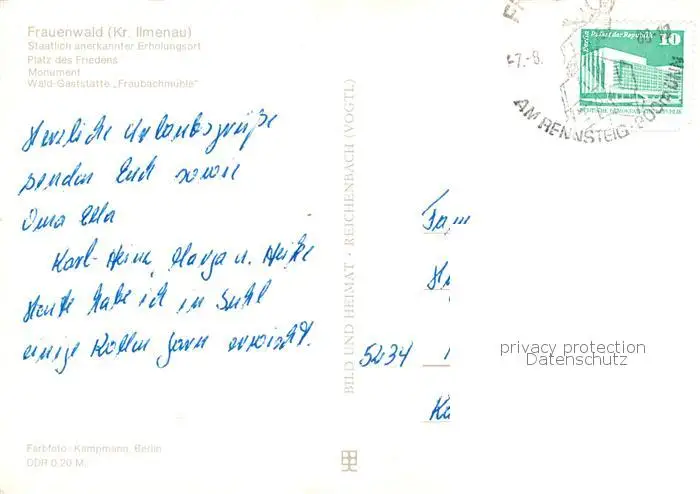 Frauenwald (Kr. Ilmenau)
Staatlich anerkannter Erholungsort
Platz des Friedens
Monument
Wald-Gaststätte „Fraubachmühle"
Herzliche Urlaubsgrüße
senden Euch sowie
Oma Ella
Karl-Heinz, Marga u. Heike
Heute habe ich in Suhl
einige Rollen Garn erwischt.
Farbfoto: Kampmann, Berlin
DDR 0,20 M.
BILD UND HEIMAT · REICHENBACH (VOGTL)
Berlin, Palast der Republik
10
-7.-8.
AM RENNSTEIG
Fam
5234
privacy protection
Datenschutz